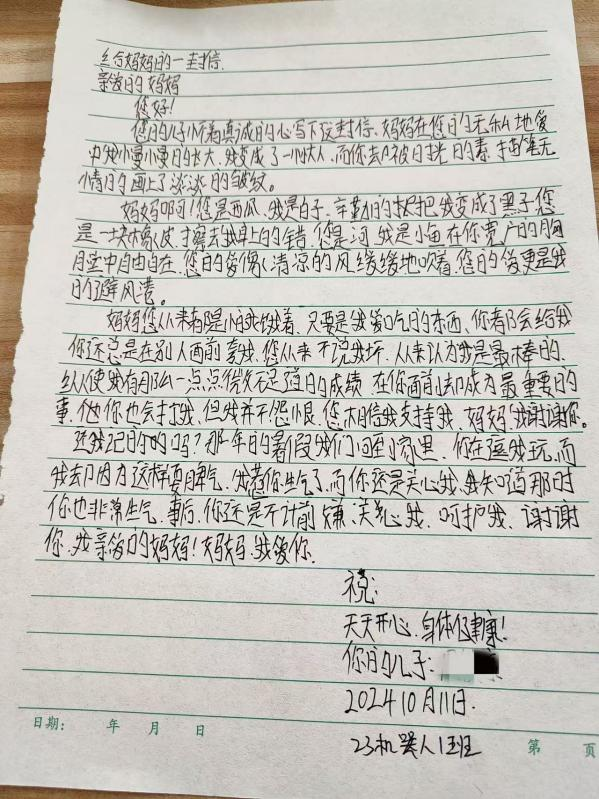 给妈妈的一封信.
亲爱的妈妈
您好!
您的儿子怀着真诚的心写下这封信、妈妈在您的无私地爱
中我慢慢的长大、我变成了一个大人,而你去却被时光的素描笔无
情的画上了淡淡的皱纹。
妈妈啊!您是西瓜、我是白子、辛勤的把我变成了黑子,您
是一块橡皮,擦去我身上的错.您是河、我是小鱼在你宽广的胸
膛中自由自在.您的爱像清凉的风缓缓地吹着.您的爱更是我
的避风港。
妈妈您从来都是怕我饿着、只要是我爱吃的东西、你都会给我
你还总是在别人面前夸我、您从来不说我坏、从来认为我是最棒的、
纵使我有那么一点点微不足道的成绩、在你面前却成为最重要的
事、他你也会打我、但我并不怨恨、您相信我支持我、妈妈我谢谢你。
还我记的吗?那年的暑假我们回到家里、你在逗我玩,而
我去却因为这样耍脾气、我惹你生气了,而你还是关心我、我知道那时
你也非常生气、事后、你还是不计前嫌、关心我、呵护我、谢谢
你、我亲爱的妈妈!妈妈、我爱你.
祝:
天天开心.身体健康!
你的儿子:
202410月11日.
23机器人1班
日期: 年 月 日
第 页